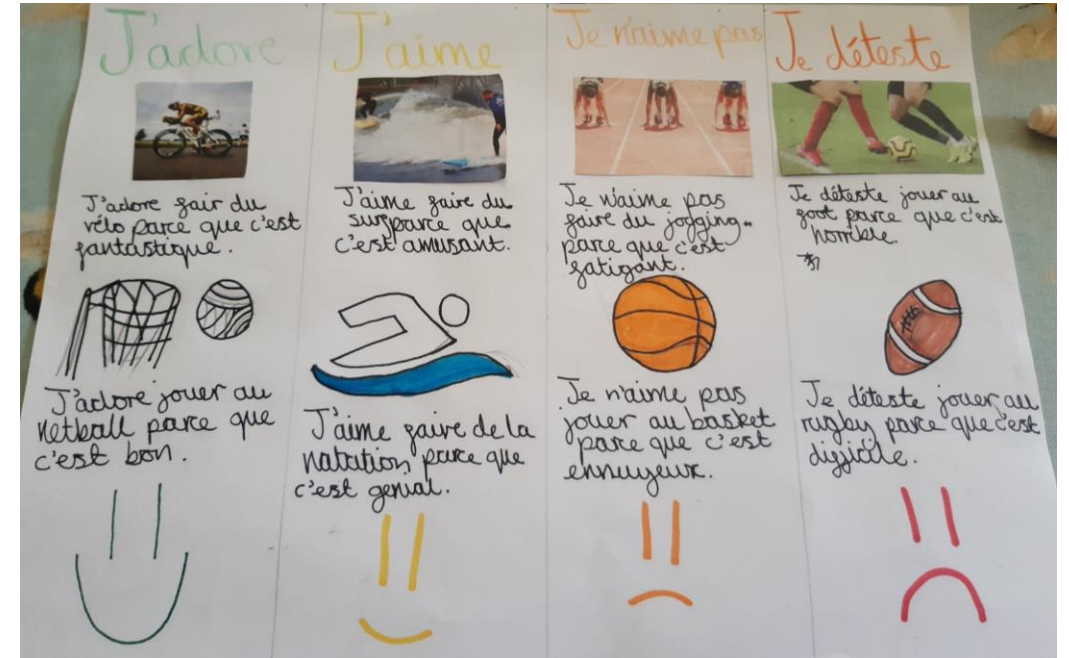 J'adore
J'adore fair du
vélo parce que c'est
fantastique.
J'adore jouer au
netball parce que
c'est bon.
J'aime
J'aime faire du
surf parce que
c'est amusant.
J'aime faire de la
natation, parce que
c'est genial.
Je n'aime pas
Je n'aime pas
faire du jogging
parce que c'est
fatigant.
Je n'aime pas
jouer au basket
parce que c'est
ennuyeux.
Je déteste
Je déteste jouer au
foot parce que c'est
horrible.
Je déteste jouer au
rugby parce que c'est
difficile.